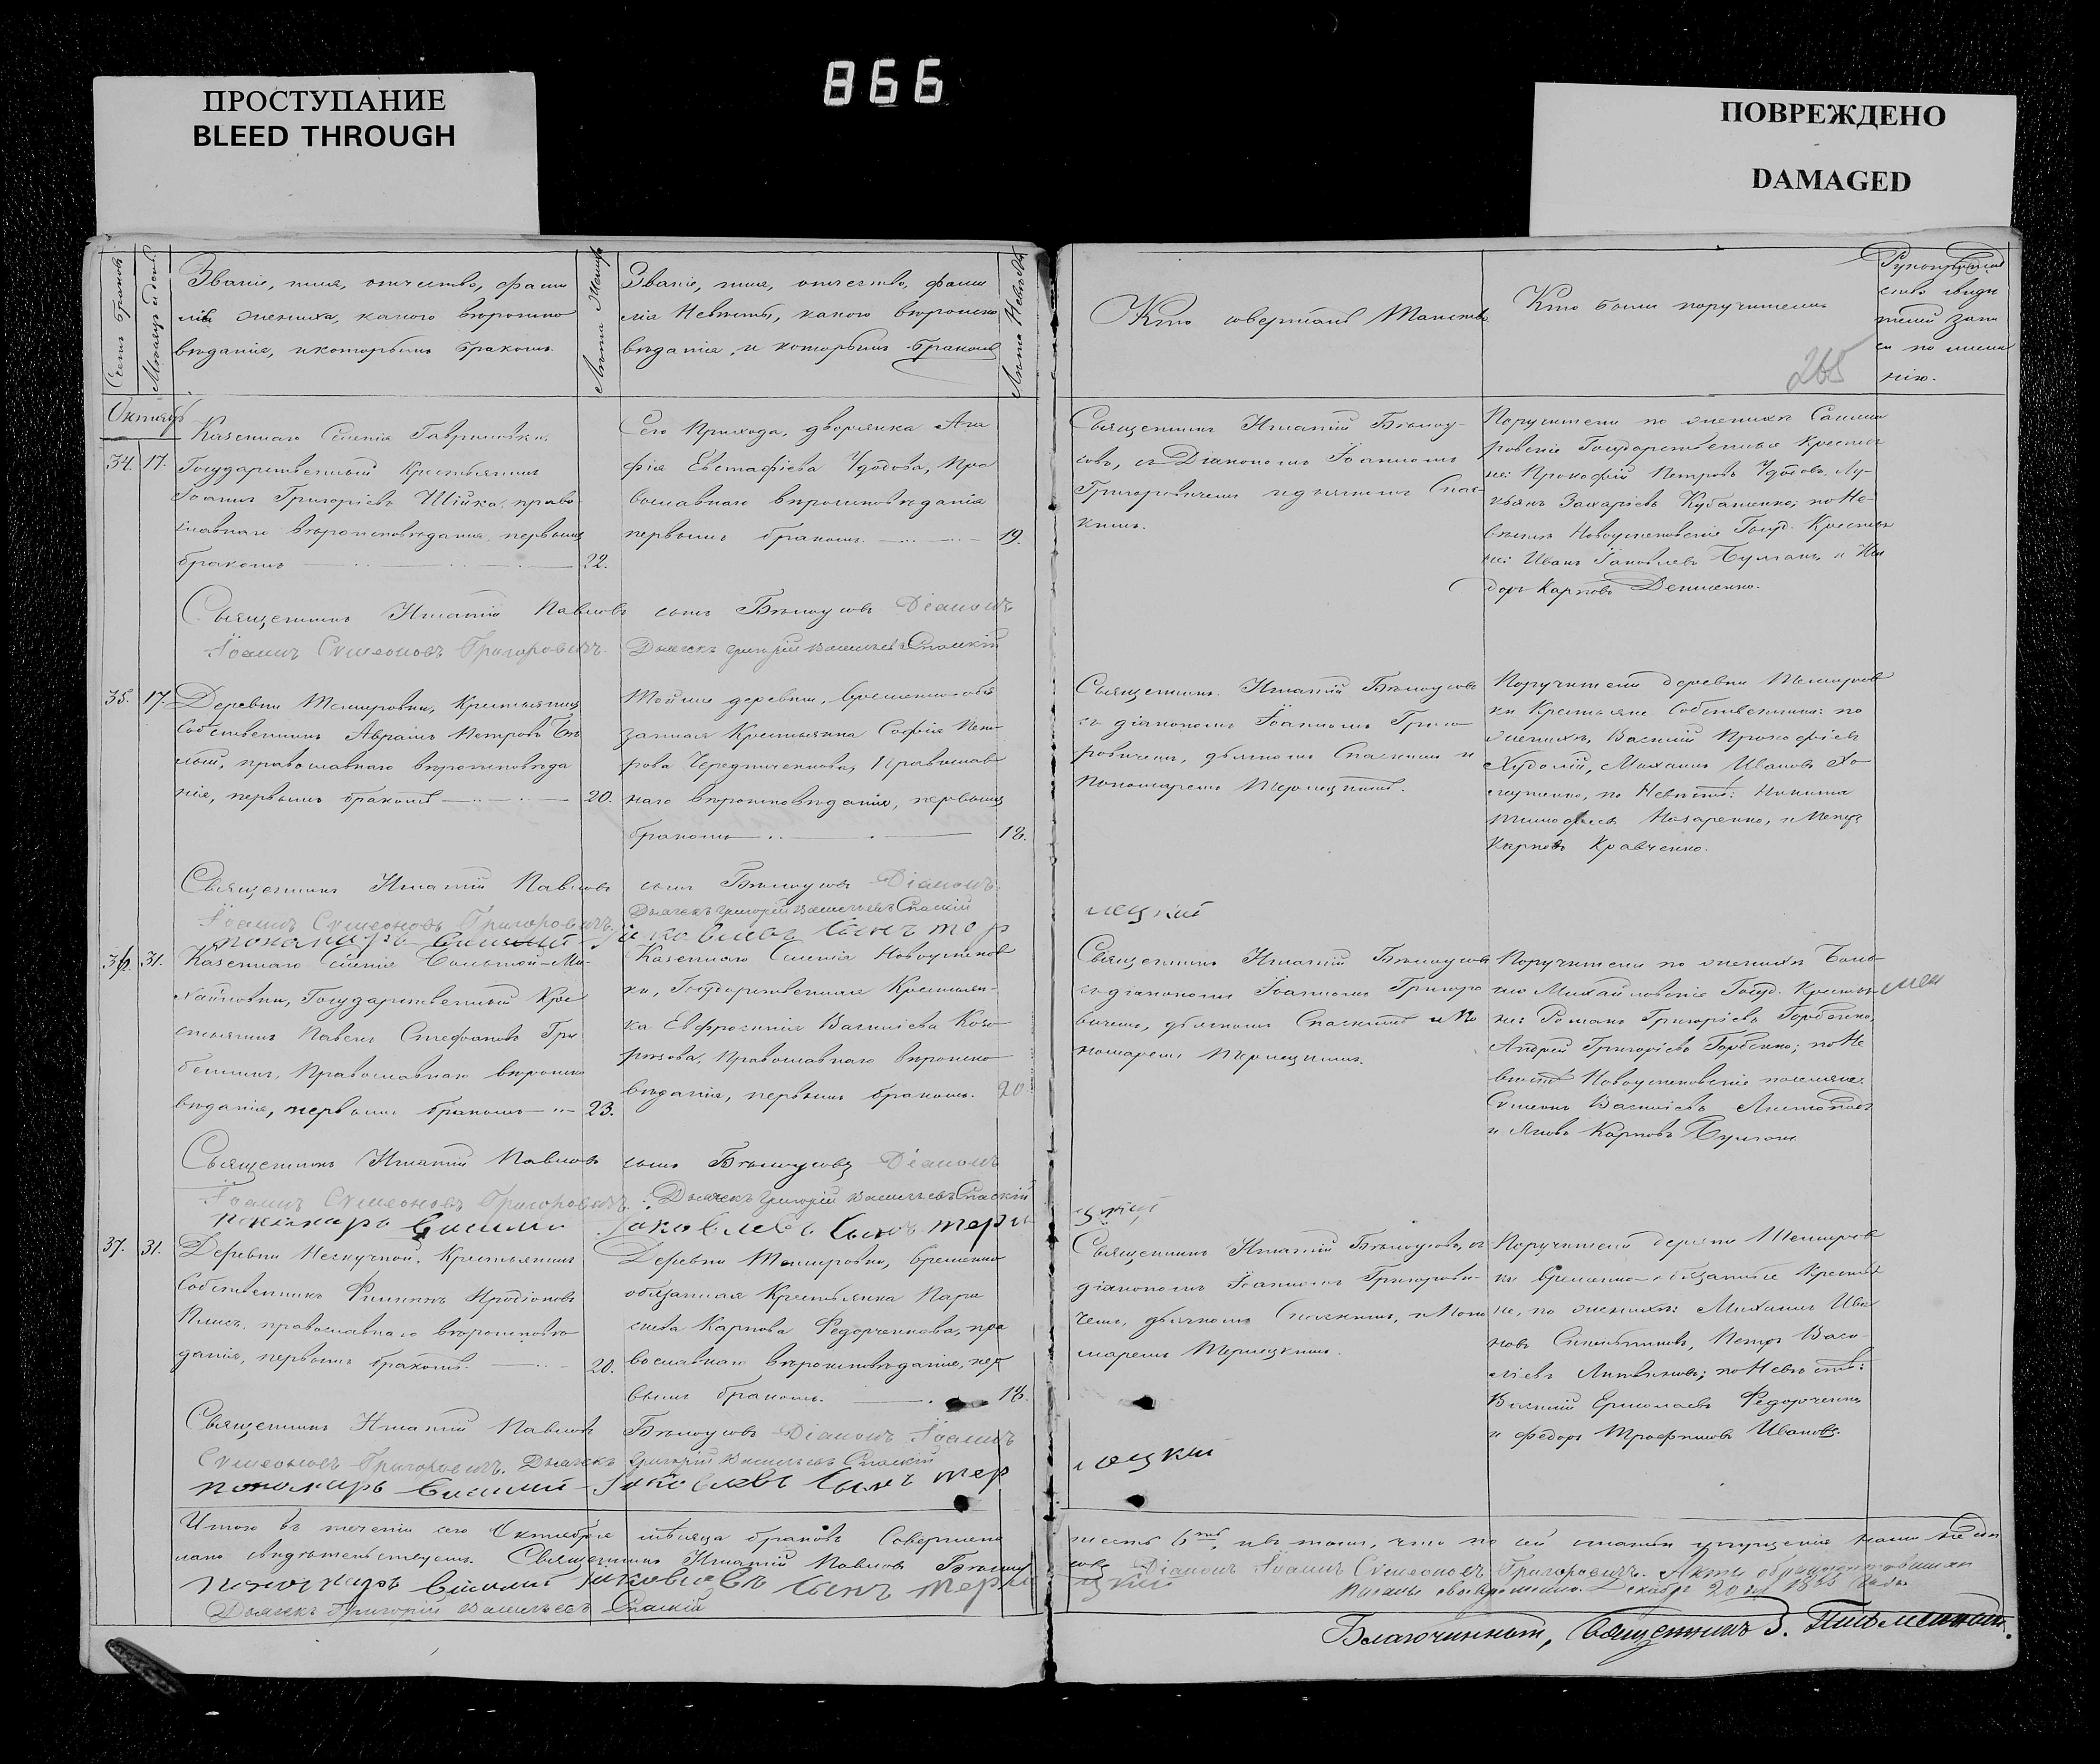 866
ПРОСТУПАНИЕ
BLEED THROUGH
ПОВРЕЖДЕНО
DAMAGED
Счетъ браковъ
Мѣсяцъ и день
Званіе, имя, отчество, фами
лія жениха, какого вѣроиспо
вѣданія, и которымъ бракомъ.
Лѣта жениха
Званіе, имя, отчество, фами
лія Невѣсты, какого вѣроиспо
вѣданія, и которымъ бракомъ
Лѣта Невѣсты
Октябрь
34. 17.
Казеннаго Селенія Гавриловки,
Государственный Крестьянинъ
Іоаннъ Григоріевъ Шійка, право
славнаго вѣроисповѣданія, первымъ
бракомъ 22.
Сего Прихода, дворянка Ага
фія Евстафіева Удодова, Пра
вославнаго вѣроисповѣданія
первымъ бракомъ. 19.
Священникъ Игнатій Павловъ сынъ Бѣлоусовъ Діаконъ
Іоаннъ Сѵмеоновъ Григоровичъ. Дьячекъ Григорій Васильевъ Спаскій
35. 17.
Деревни Темировки, Крестьянинъ
Собственникъ Авраамъ Петровъ Бѣ
лый, православнаго вѣроисповѣда
нія, первымъ бракомъ 20.
Той же деревни, временно-обя
занная Крестьянка Софія Пет
рова Чередниченкова, Православ
наго вѣроисповѣданія, первымъ
бракомъ 18.
Священникъ Игнатій Павловъ сынъ Бѣлоусовъ Діаконъ
Іоаннъ Сѵмеоновъ Григоровичъ. Дьячекъ Григорій Васильевъ Спаскій
пономарь Василій Яковлевъ сынъ Тер
36. 31.
Казеннаго Селенія Большой-Ми-
хайловки, Государственный Кре
стьянинъ Павелъ Стефановъ Гри
бенникъ, Православнаго вѣроиспо
вѣданія, первымъ бракомъ 23.
Казеннаго Селенія Новоуспенов
ки, Государственная Крестьян-
ка Евфросинія Васильева Козо
рѣзова, Православнаго вѣроиспо
вѣданія, первымъ бракомъ. 20.
Священникъ Игнатій Павловъ сынъ Бѣлоусовъ Діаконъ
Іоаннъ Сѵмеоновъ Григоровичъ. Дьячекъ Григорій Васильевъ Спаскій
пономарь Василій Яковлевъ сынъ Терле
37. 31.
Деревни Нескучной, Крестьянинъ
Собственникъ Филиппъ Иродіоновъ
православнаго вѣроисповѣ
данія, первымъ бракомъ. 20.
Деревни Темировки, временно
обязанная Крестьянка Пара
скева Карпова Федорченкова, пра
вославнаго вѣроисповѣданія, пер
вымъ бракомъ. 18.
Священникъ Игнатій Павловъ Бѣлоусовъ Діаконъ Іоаннъ
Сѵмеоновъ Григоровичъ. Дьячекъ Григорій Васильевъ Спаскій
пономарь Василій Яковлевъ сынъ Тер
Итого въ теченіи сего Октября мѣсяца браковъ Совершено
свидѣтельствуемъ. Священникъ Игнатій Павловъ Бѣлоу
пономарь Василій Яковлевъ сынъ Терле
Дьячекъ Григорій Васильевъ Спаскій
Кто совершалъ Таинство
Кто были поручители
Рукоприклад
ство свиде
телей запи
си по жела
нію.
265
Священникъ Игнатій Бѣлоу-
совъ, съ Діакономъ Іоанномъ
Григоровичемъ и дьячкомъ Спас-
кимъ.
Поручители по женихѣ
Государственные Крестья
не: Прокофій Петровъ Удодов, Лу-
кьянъ Захаріевъ Кубатенко; по Не-
вѣстѣ Новоуспеновскіе Госуд. Крестья
не: Иванъ Іаковлевъ и Иси
доръ Карповъ
Священникъ Игнатій Бѣлоусовъ
съ діакономъ Іоанномъ Григо
ровичемъ, дьячкомъ Спаскимъ и
пономаремъ Терлецкимъ.
Поручители деревни Темиров
ки Крестьяне Собственники: по
женихѣ, Василій Прокофіев
Худолій, Михаилъ Ивановъ Хо
менко, по Невѣстѣ: Никита
Тимофеевъ Назаренко, и Петръ
Карповъ Кравченко.
лецкій
Священникъ Игнатій Бѣлоусовъ
съ діакономъ Іоанномъ Григоро
вичемъ, дьячкомъ Спаскимъ и По
номаремъ Терлецкимъ.
Поручители по женихѣ Боль
ше Михайловскіе Госуд. Крестья
не: Романъ Григоріевъ Горбенко,
Андрей Григоріевъ Горбенко; по Не
вѣстѣ Новоуспеновскіе поселяне:
Сѵмеонъ Васильевъ Листопадъ
и Яковъ Карповъ
цкій
Священникъ Игнатій Бѣлоусовъ, съ
діакономъ Іоанномъ Григорови-
чемъ, дьячкомъ Спаскимъ, и Поно
маремъ Терлецкимъ.
Поручители деревни Темиров
ки временно-обязанные Крестья
не, по женихѣ: Михаилъ Ива
новъ Петръ Васи
лiевъ Литвиновъ; по Невѣстѣ:
Василій Ермолаевъ Федорченко
и Федоръ Трофимовъ Ивановъ.
лецкій
шесть 6ть, въ томъ, что по сей
совъ Діаконъ Іоаннъ Сѵмеоновъ Григоровичъ. Акты
цкій писаны своевременно. Декабря 20 дня
Благочинный, Священникъ